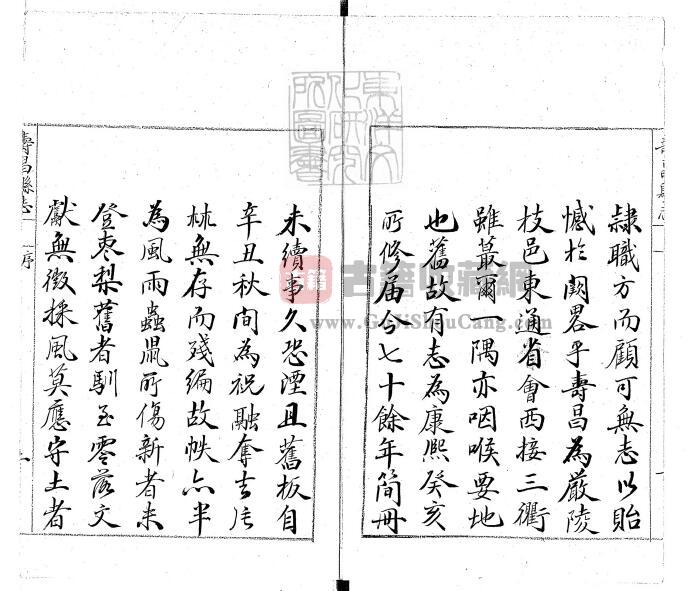 隷職方而顧可無志以貽
憾於闕畧乎壽昌為嚴陵
枝邑東通省會西接三衢
雖蕞爾一隅亦咽喉要地
也舊故有志為康熙癸亥
所修届今七十餘年簡冊
未續事久恐湮且舊板自
辛丑秋間為祝融奪去片
林無存而殘編故帙亦半
為風雨蟲鼠所傷新者未
登棗梨舊者馴至零落文
獻無徵採風莫應守土者
壽昌縣志
序
古籍
古籍收藏網
www.GuJiShouCang.com